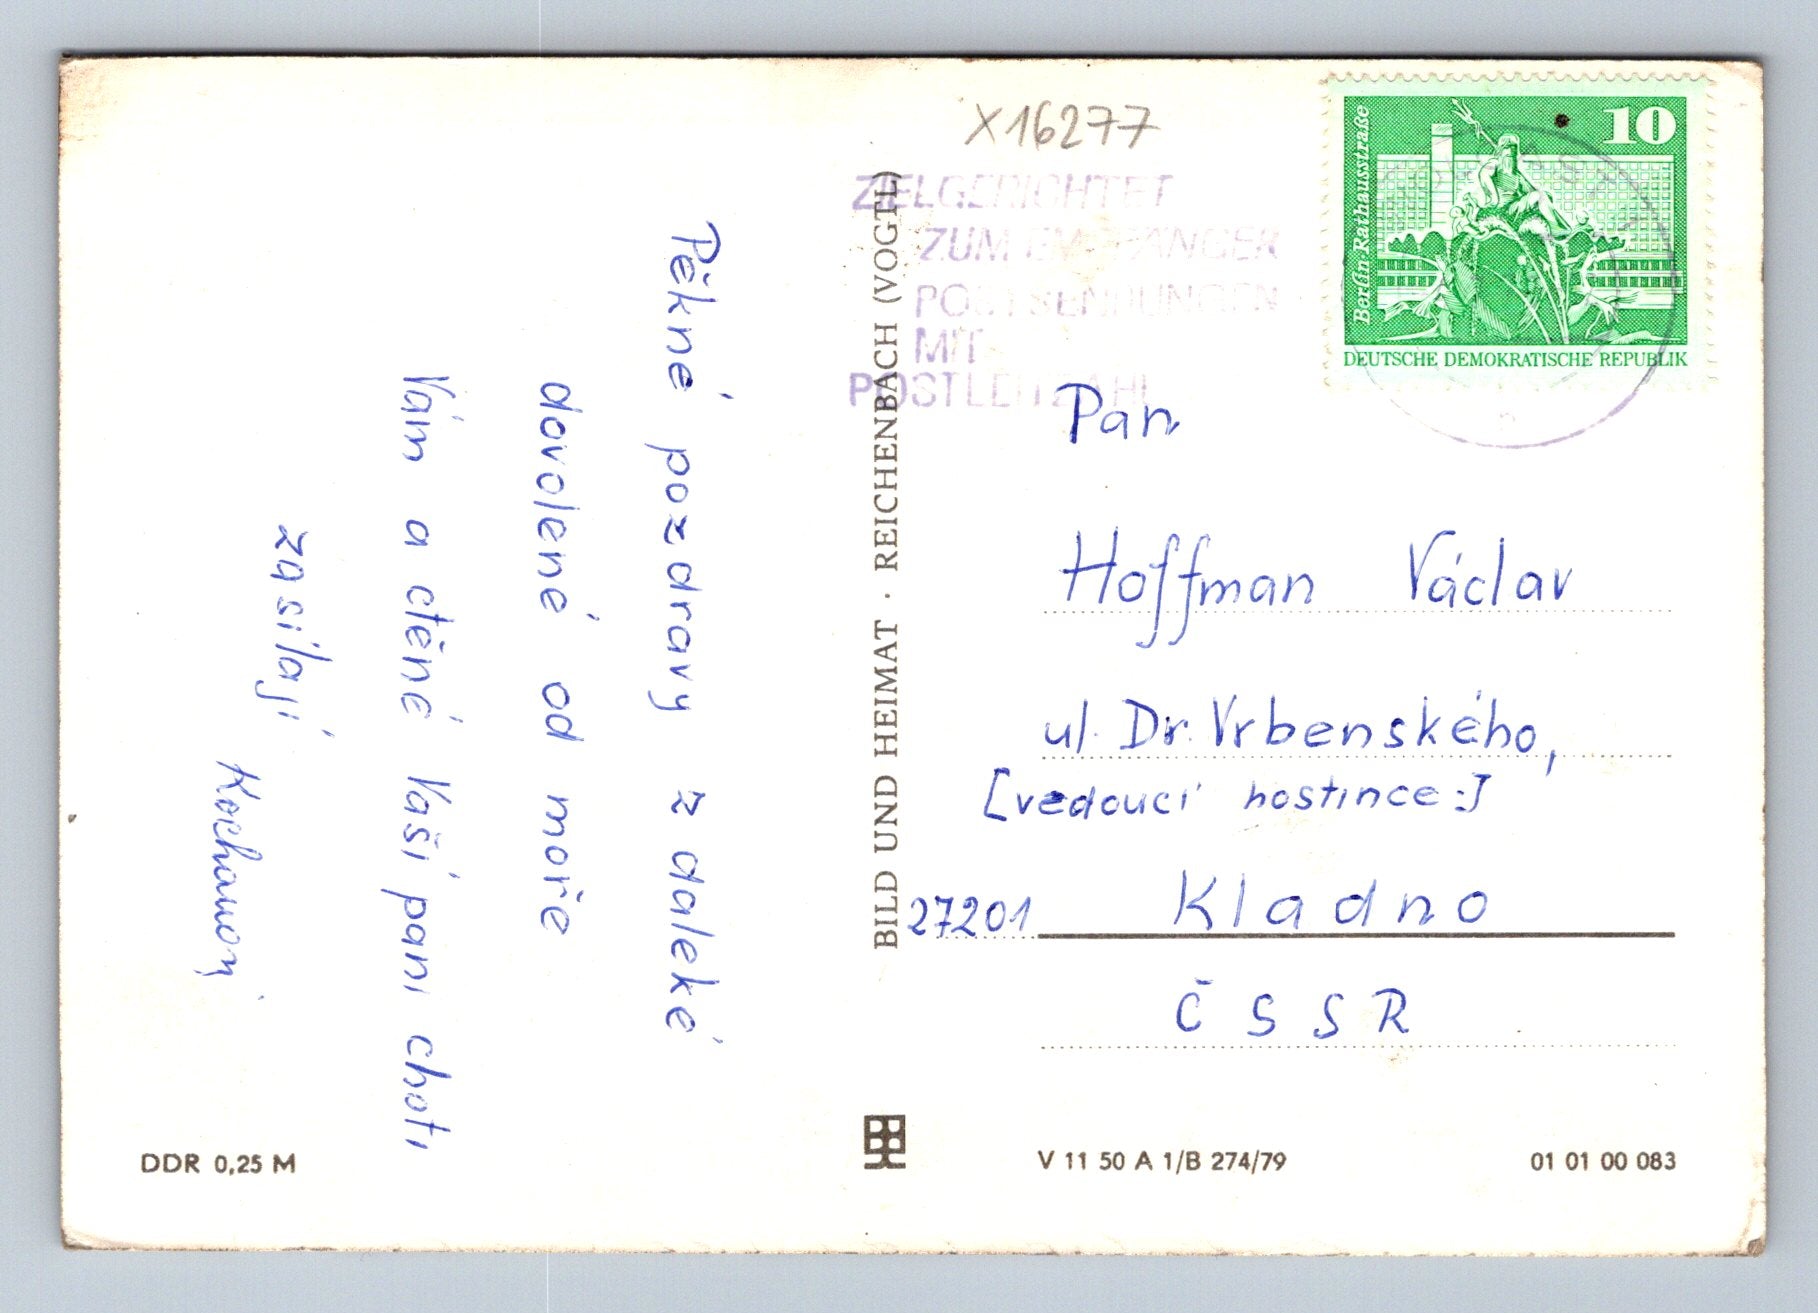 Pěkné pozdravy z daleké
dovolené od moře
Vám a ctěné Vaší paní choti
zasílají
Kochanovi
X16277
ZIELGERICHTET
ZUM EMPFÄNGER
POSTSENDUNGEN
MIT
POSTLEITZAHL
Berlin-Rathausstraße
10
DEUTSCHE DEMOKRATISCHE REPUBLIK
Pan
Hoffman Václav
ul. Dr. Vrbenského,
[vedoucí hostince:]
27201 Kladno
ČSSR
BILD UND HEIMAT · REICHENBACH (VOGTL)
DDR 0,25 M
V 11 50 A 1/B 274/79
01 01 00 083